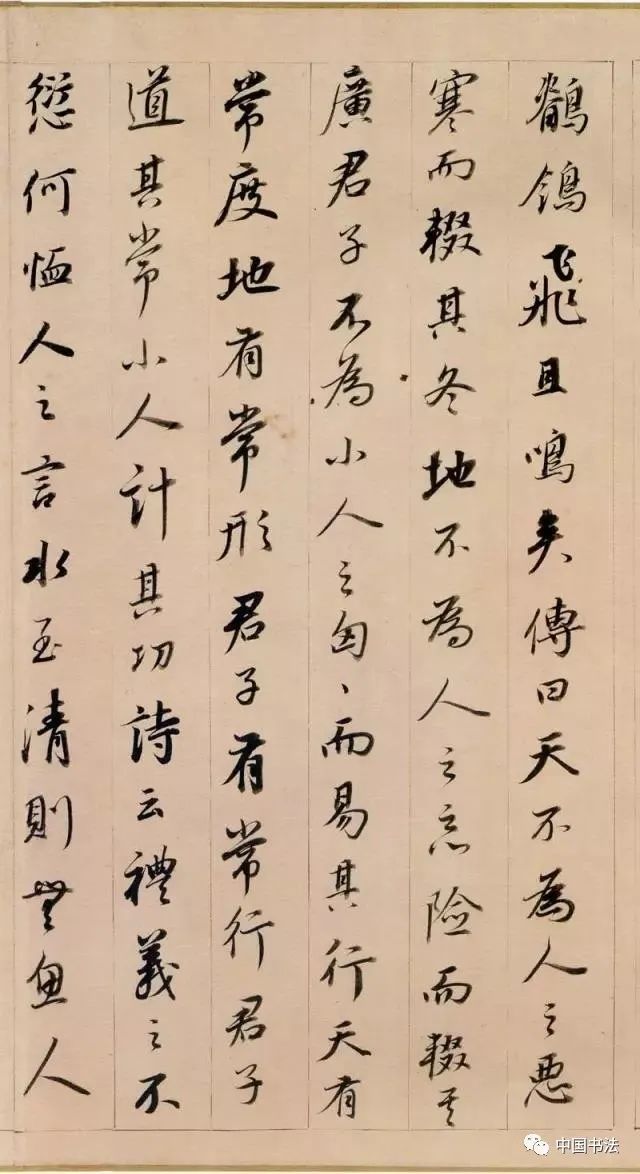 鶺鴒飛且鳴矣傳曰天不為人之惡
寒而輟其冬地不為人之惡險而輟其
廣君子不為小人之匈〻而易其行天有
常度地有常形君子有常行君子
道其常小人計其功詩云禮義之不
愆何恤人之言水至清則無魚人
中国书法